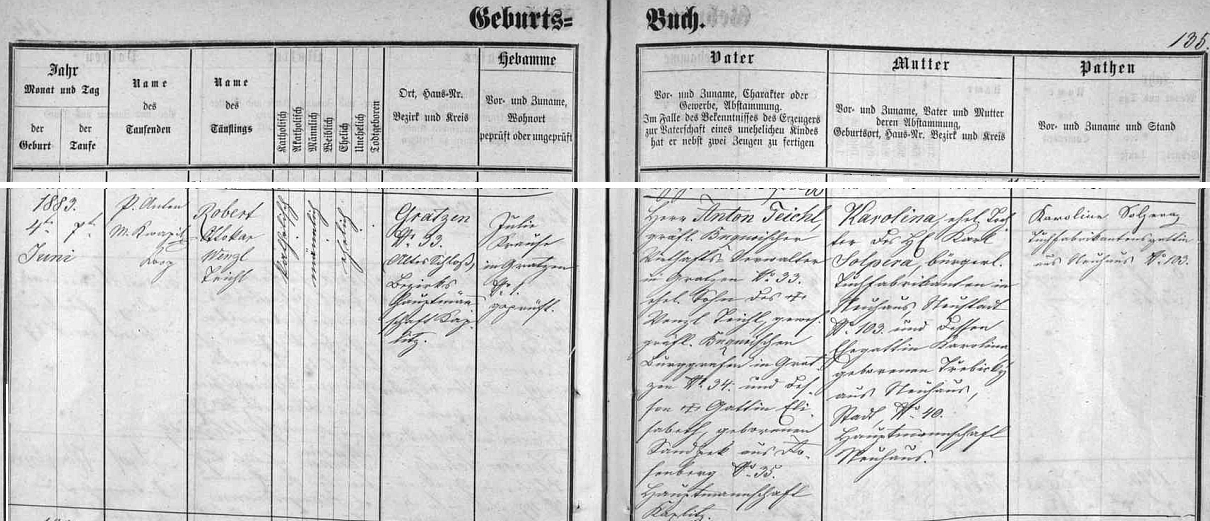 Geburts= Buch.
135.
Jahr
Monat und Tag
der Geburt
der Taufe
Name
des
Taufenden
Name
des
Täuflings
Katholisch
Akatholisch
Männlich
Weiblich
Ehelich
Unehelich
Todtgeboren
Ort, Haus-Nr.
Bezirk und Kreis
Hebamme
Vor- und Zuname,
Wohnort
geprüft oder ungeprüft
Vater
Vor- und Zuname, Charakter oder
Gewerbe, Abstammung.
Im Falle des Bekenntnisses des Erzeugers
zur Vaterschaft eines unehelichen Kindes
hat er nebst zwei Zeugen zu fertigen
Mutter
Vor- und Zuname, Vater und Mutter
deren Abstammung,
Geburtsort, Haus-Nr. Bezirk und Kreis
Pathen
Vor- und Zuname und Stand
1883.
4ten 7ten
Juni
P. Anton
M.
Robert
Ottokar
Wenzl
Teichl
katholisch
männlich
ehelich
Gratzen
No. 33.
Altes Schloß,
Bezirks
Hauptman̄
schaft Kap-
litz.
Julie
Krause
in Gratzen
geprüft.
Herr Anton Teichl,
gräfl. Buquoischer
Verwalter
in Gratzen No. 33.
ehel. Sohn des
Wenzl Teichl, gewes.
gräfl. Buquoischen
Burggrafen in Grat-
zen No. 34. und des-
sen Gattin Eli-
sabeth, geborenen
aus Ro-
senberg No. 35.
Hauptmannschaft
Kaplitz.
Karolina, ehel. Toch-
ter des H. Karl
Solpera, bürgerl.
Tuchfabrikanten in
Neuhaus Neustadt
No. 103. und dessen
Ehegattin Karolina
geborenen
aus Neuhaus,
Stadt No. 40.
Hauptmannschaft
Neuhaus.
Karoline Solpera
Tuchfabrikantensgattin
aus Neuhaus No. 103.